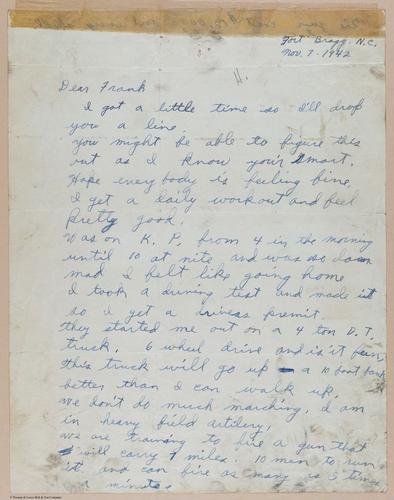 Fort Bragg. N.C.
Nov. 7-1942
H.
Dear Frank
I got a little time so I'll drop
you a line.
You might be able to figure this
out as I know your smart.
Hope every body is feeling fine.
I get a daily workout and feel
pretty good.
Was on K. P. from 4 in the morning
until 10 at nite and was so damn
mad I felt like going home
I took a driving test and made it
so I get a drivers premit.
they started me out on a 4 ton D.T.
truck. 6 wheel drive and is it fun,
this truck will go up a 10 foot bank
better than I can walk up.
We don't do much marching, I am
in heavy field artilery,
We are training to fire a gun that
will carry 9 miles. 10 men to run
it and can fire as many as 5 times
a minute